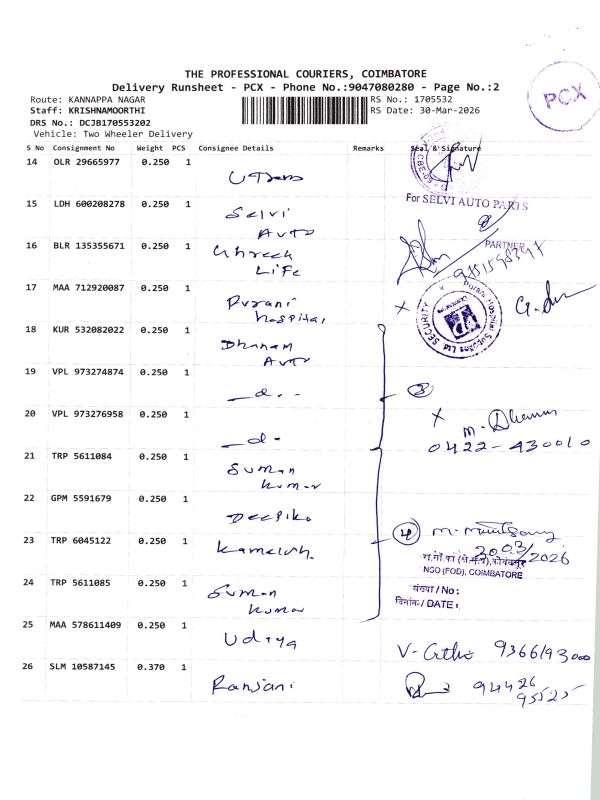 THE PROFESSIONAL COURIERS, COIMBATORE
Delivery Runsheet - PCX - Phone No.:9047080280 - Page No.:2
Route: KANNAPPA NAGAR
RS No.: 1705532
Staff: KRISHNAMOORTHI
RS Date: 30-Mar-2026
DRS No.: DCJB170553202
Vehicle: Two Wheeler Delivery
PCX
S No Consignment No Weight PCS Consignee Details Remarks Seal & Signature
14 OLR 29665977 0.250 1
15 LDH 600208278 0.250 1 Selvi Auto
For SELVI AUTO PARTS
PARTNER
16 BLR 135355671 0.250 1 Life
17 MAA 712920087 0.250 1 Purani hospital
18 KUR 532082022 0.250 1 Dhanam Auto
19 VPL 973274874 0.250 1 —d.-
3
20 VPL 973276958 0.250 1 —d-
X M. Dhanam
0422-430010
21 TRP 5611084 0.250 1 Suman kumar
22 GPM 5591679 0.250 1 Deepika
23 TRP 6045122 0.250 1 Kamalesh.
4
30/03/2026
NSO (FOD), COIMBATORE
24 TRP 5611085 0.250 1 Suman kumar
संख्या / No :
दिनांक / DATE :
25 MAA 578611409 0.250 1 Udaya
9366193000
26 SLM 10587145 0.370 1 Ranjani
94426
95525